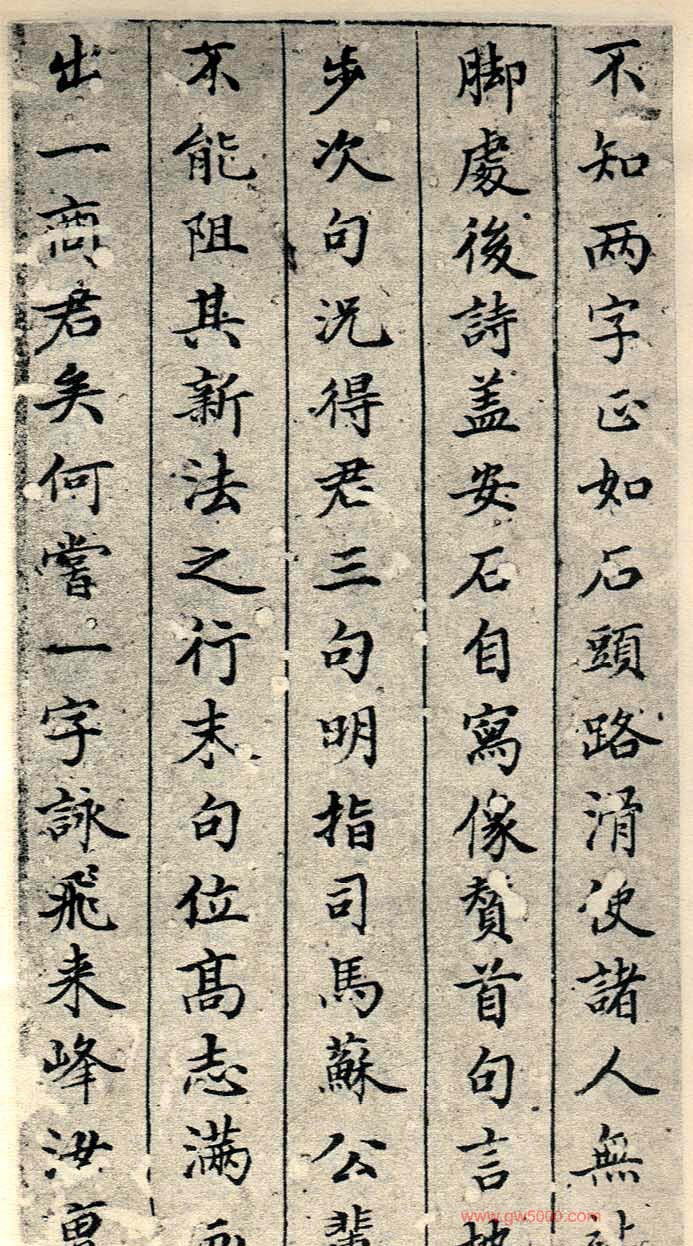 不知两字正如石頭路滑使諸人無
脚處後詩盖安石自寫像賛首句言
步次句況得君三句明指司馬蘇公輩
不能阻其新法之行末句位高志满
出一商君矣何嘗一字詠飛来峰汝
www.gw5000.com